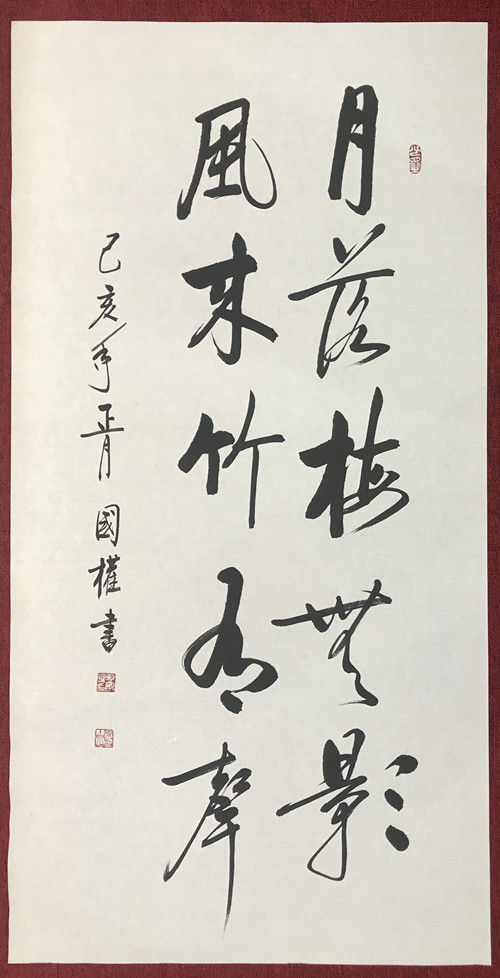 月落梅無影
風来竹有聲
己亥年正月國權書